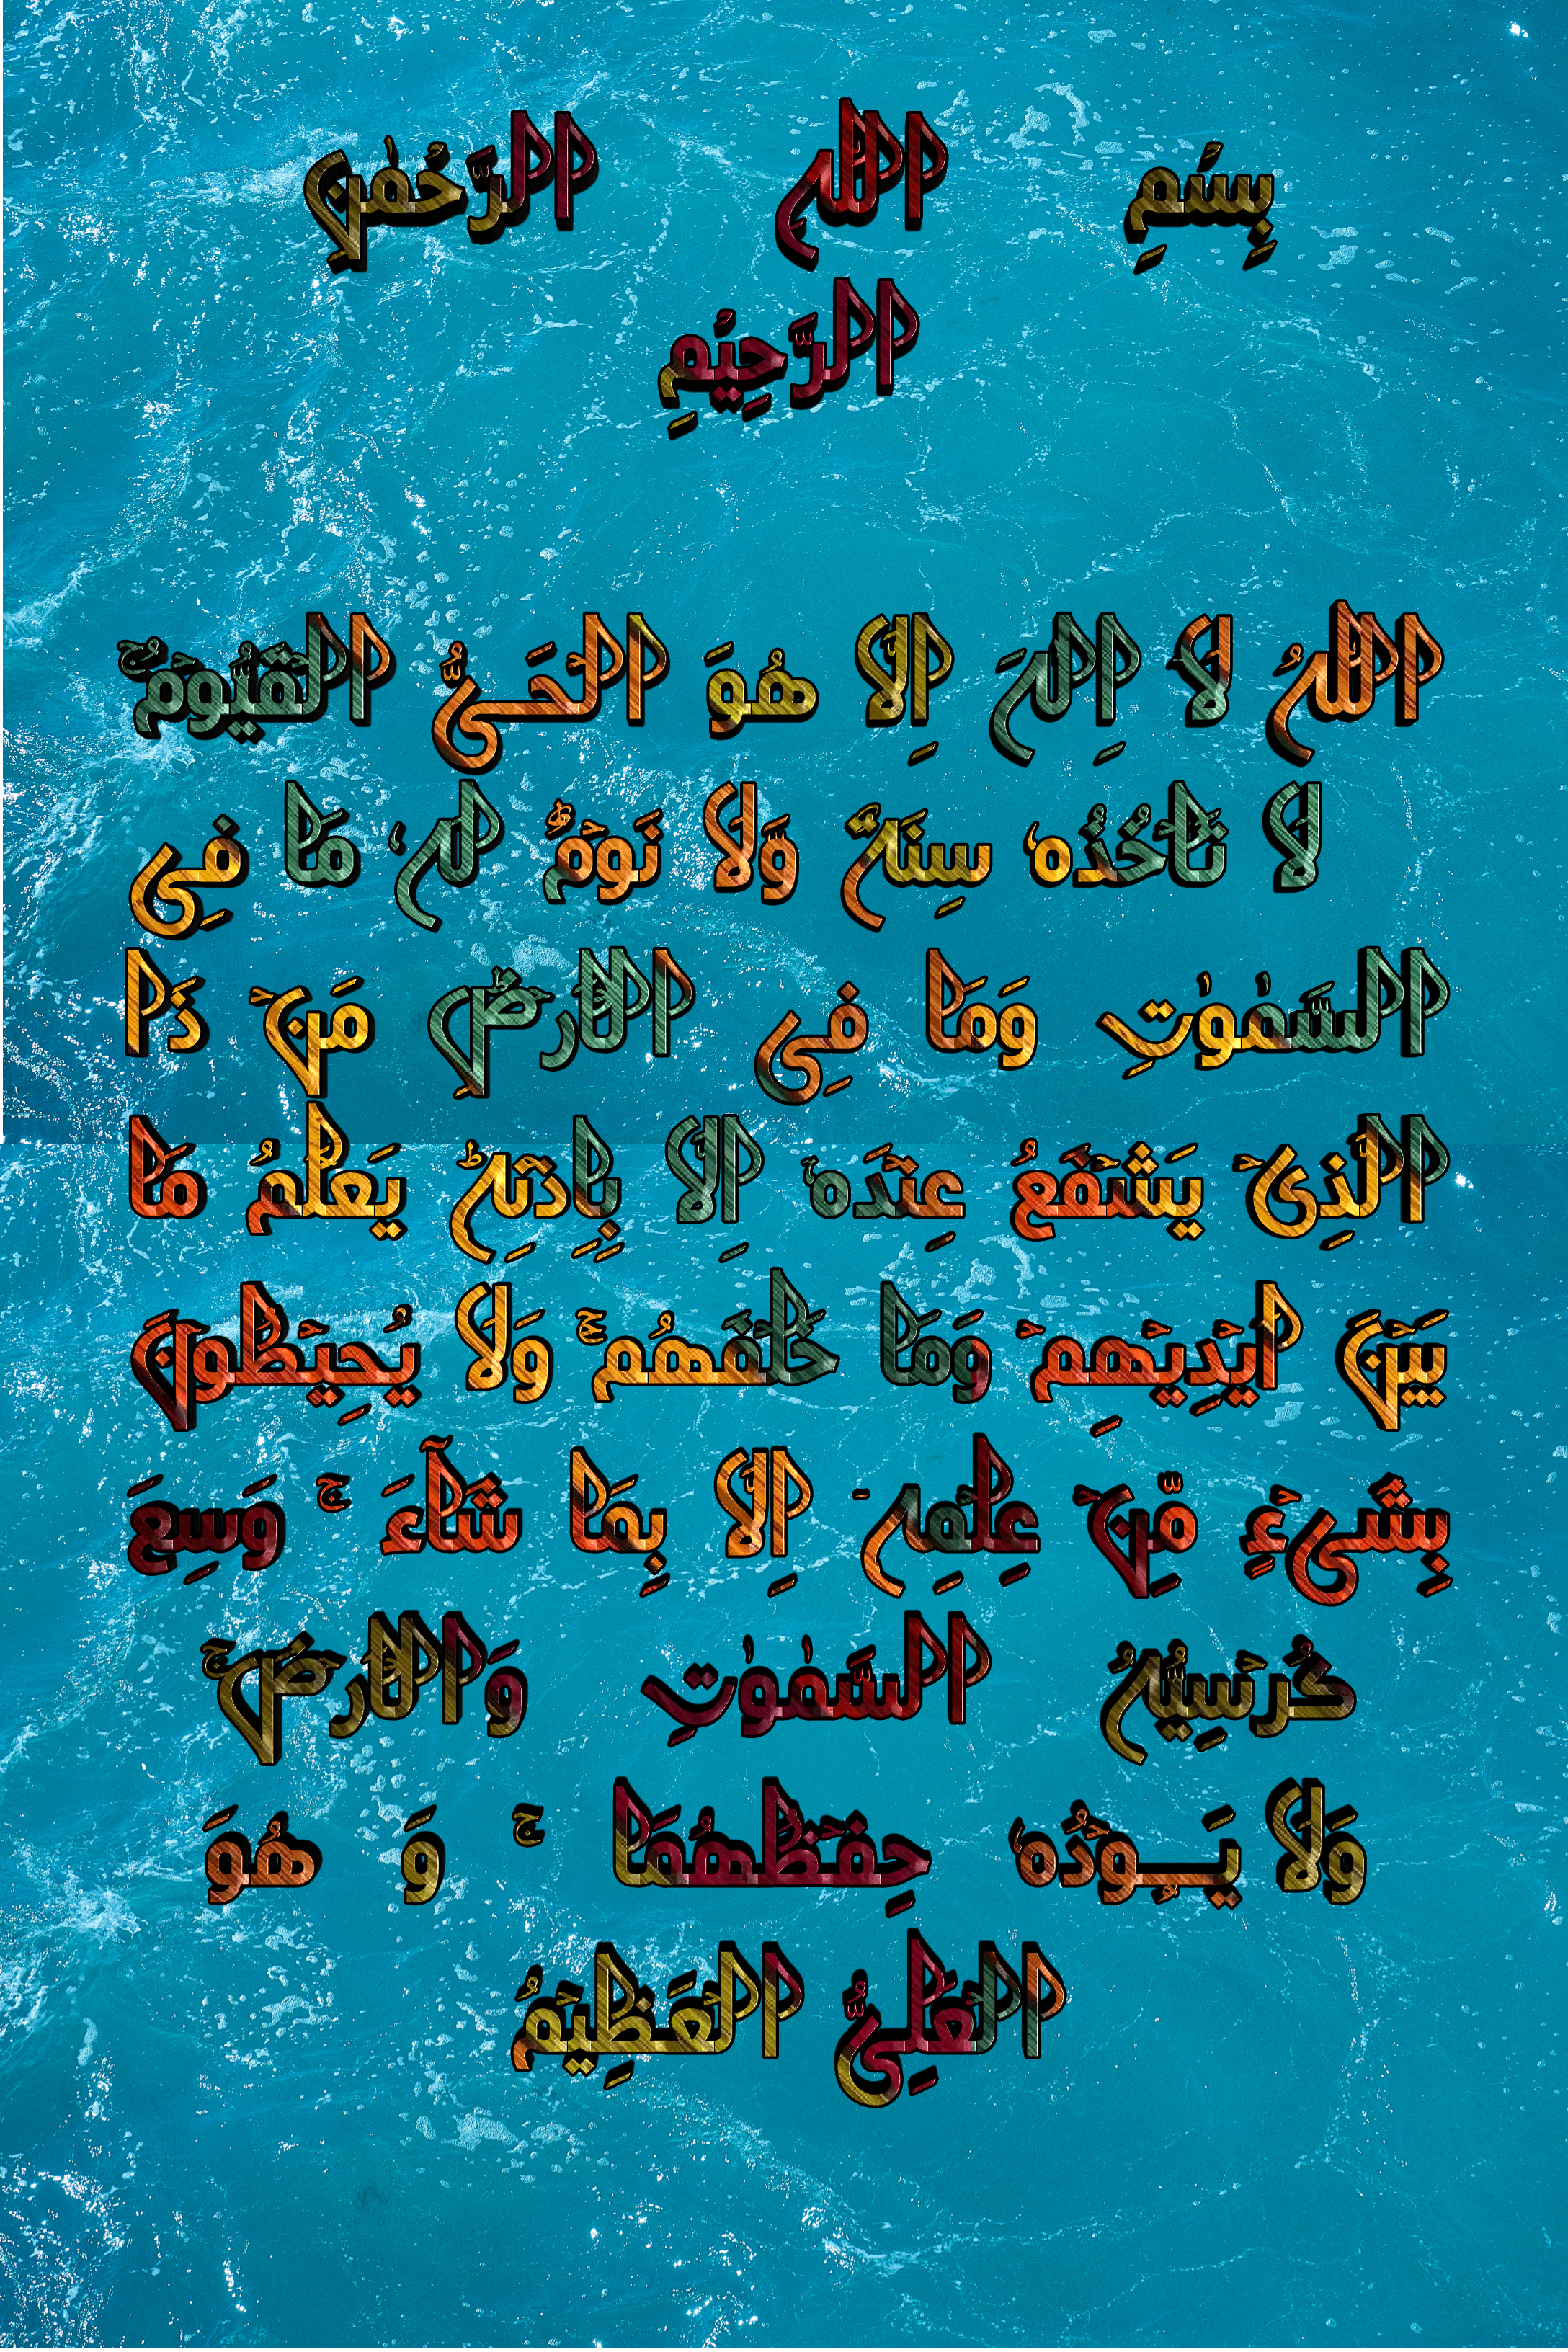 بِسْمِ اللّٰهِ الرَّحْمٰنِ
الرَّحِيْمِ
اللّٰهُ لَا اِلٰهَ اِلَّا هُوَ الْحَـىُّ الْقَيُّوْمُ ۚ
لَا تَاْخُذُهٗ سِنَةٌ وَّلَا نَوْمٌ ؕ لَهٗ مَا فِى
السَّمٰوٰتِ وَمَا فِى الْاَرْضِ ؕ مَنْ ذَا
الَّذِىْ يَشْفَعُ عِنْدَهٗ اِلَّا بِاِذْنِهٖ ؕ يَعْلَمُ مَا
بَيْنَ اَيْدِيْهِمْ وَمَا خَلْفَهُمْ ۚ وَلَا يُحِيْطُوْنَ
بِشَىْءٍ مِّنْ عِلْمِهٖۤ اِلَّا بِمَا شَآءَ ۚ وَسِعَ
كُرْسِيُّهُ السَّمٰوٰتِ وَالْاَرْضَ ۚ
وَلَا يَــوْدُهٗ حِفْظُهُمَا ۚ وَ هُوَ
الْعَلِىُّ الْعَظِيْمُ